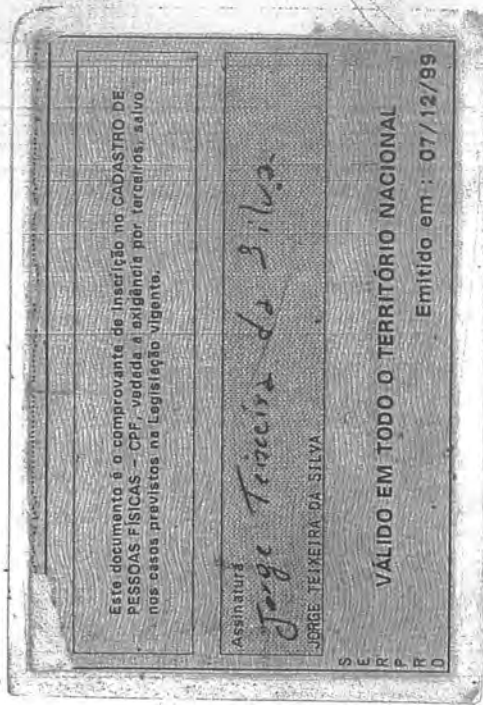 Este documento é o comprovante de Inscrição no CADASTRO DE
PESSOAS FÍSICAS - CPF, vedada a exigência por terceiros, salvo
nos casos previstos na Legislação vigente.
Assinatura
Jorge Teixeira da Silva
JORGE TEIXEIRA DA SILVA
SERPRO
VÁLIDO EM TODO O TERRITÓRIO NACIONAL
Emitido em : 07/12/99